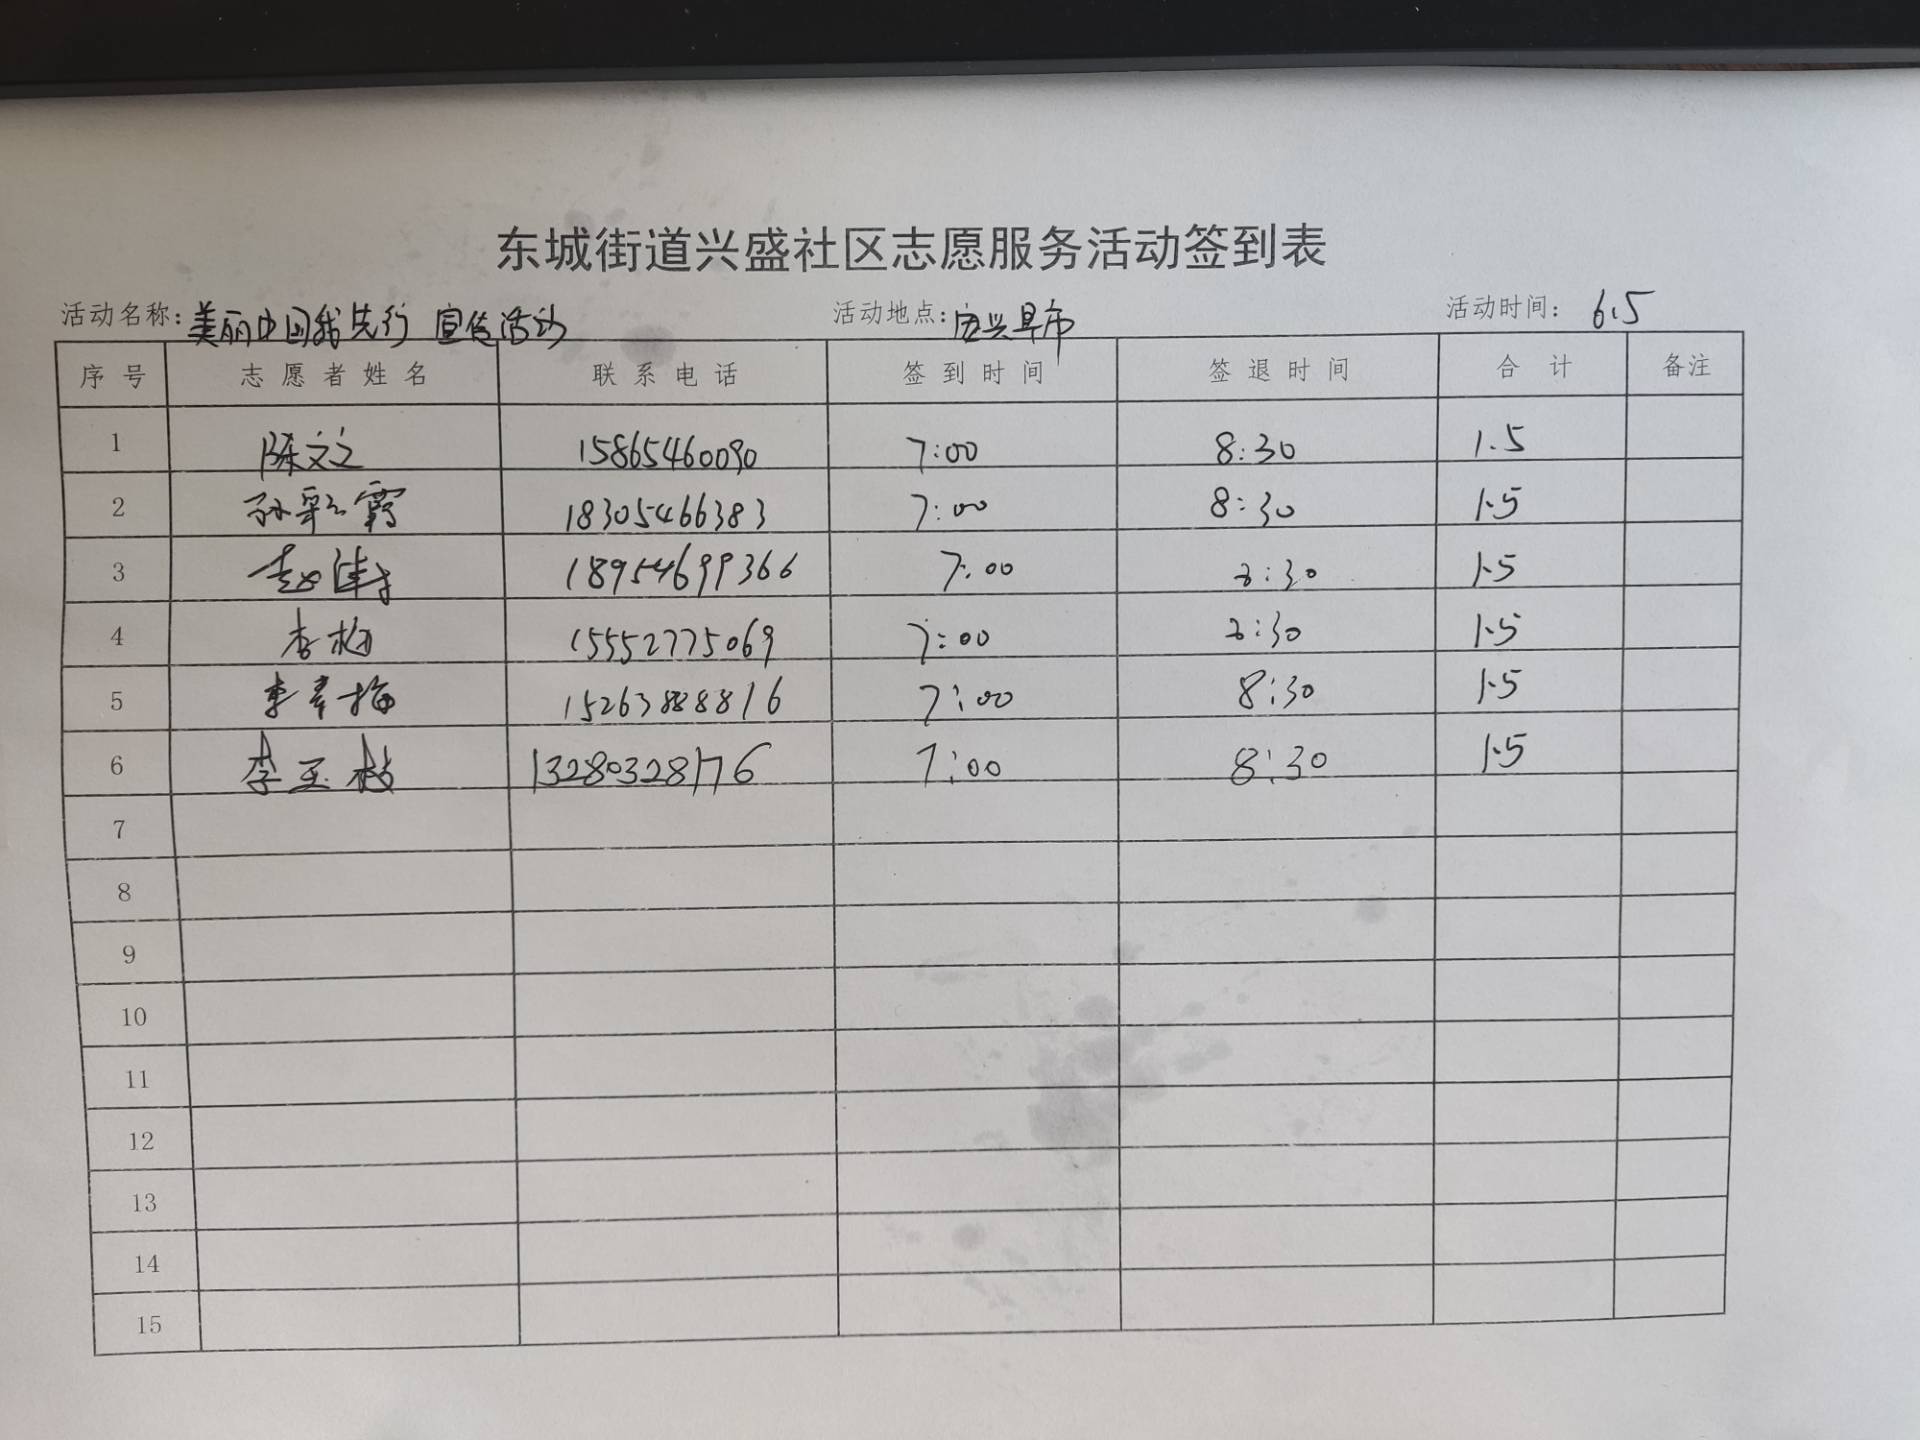 东城街道兴盛社区志愿服务活动签到表
活动名称：美丽中国我先行 宣传活动 活动地点：兴早市 活动时间：6.5
序号 志愿者姓名 联系电话 签到时间 签退时间 合计 备注
1 陈文文 15865460090 7:00 8:30 1.5
2 孙彩霞 18305466383 7:00 8:30 1.5
3 赵 18954699366 7:00 8:30 1.5
4 李 15552775069 7:00 8:30 1.5
5 李 梅 15263888816 7:00 8:30 1.5
6 李玉枝 13280328176 7:00 8:30 1.5
7
8
9
10
11
12
13
14
15